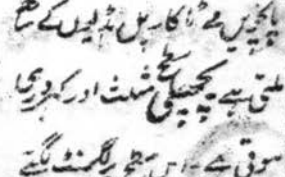 پانچویں مے ٹا کارپل ہڈیوں کے
ملتی ہے پچھلی سطح مثلث اور کھردری
ہوتی ہے۔ اس پر لگمنٹ لگتے